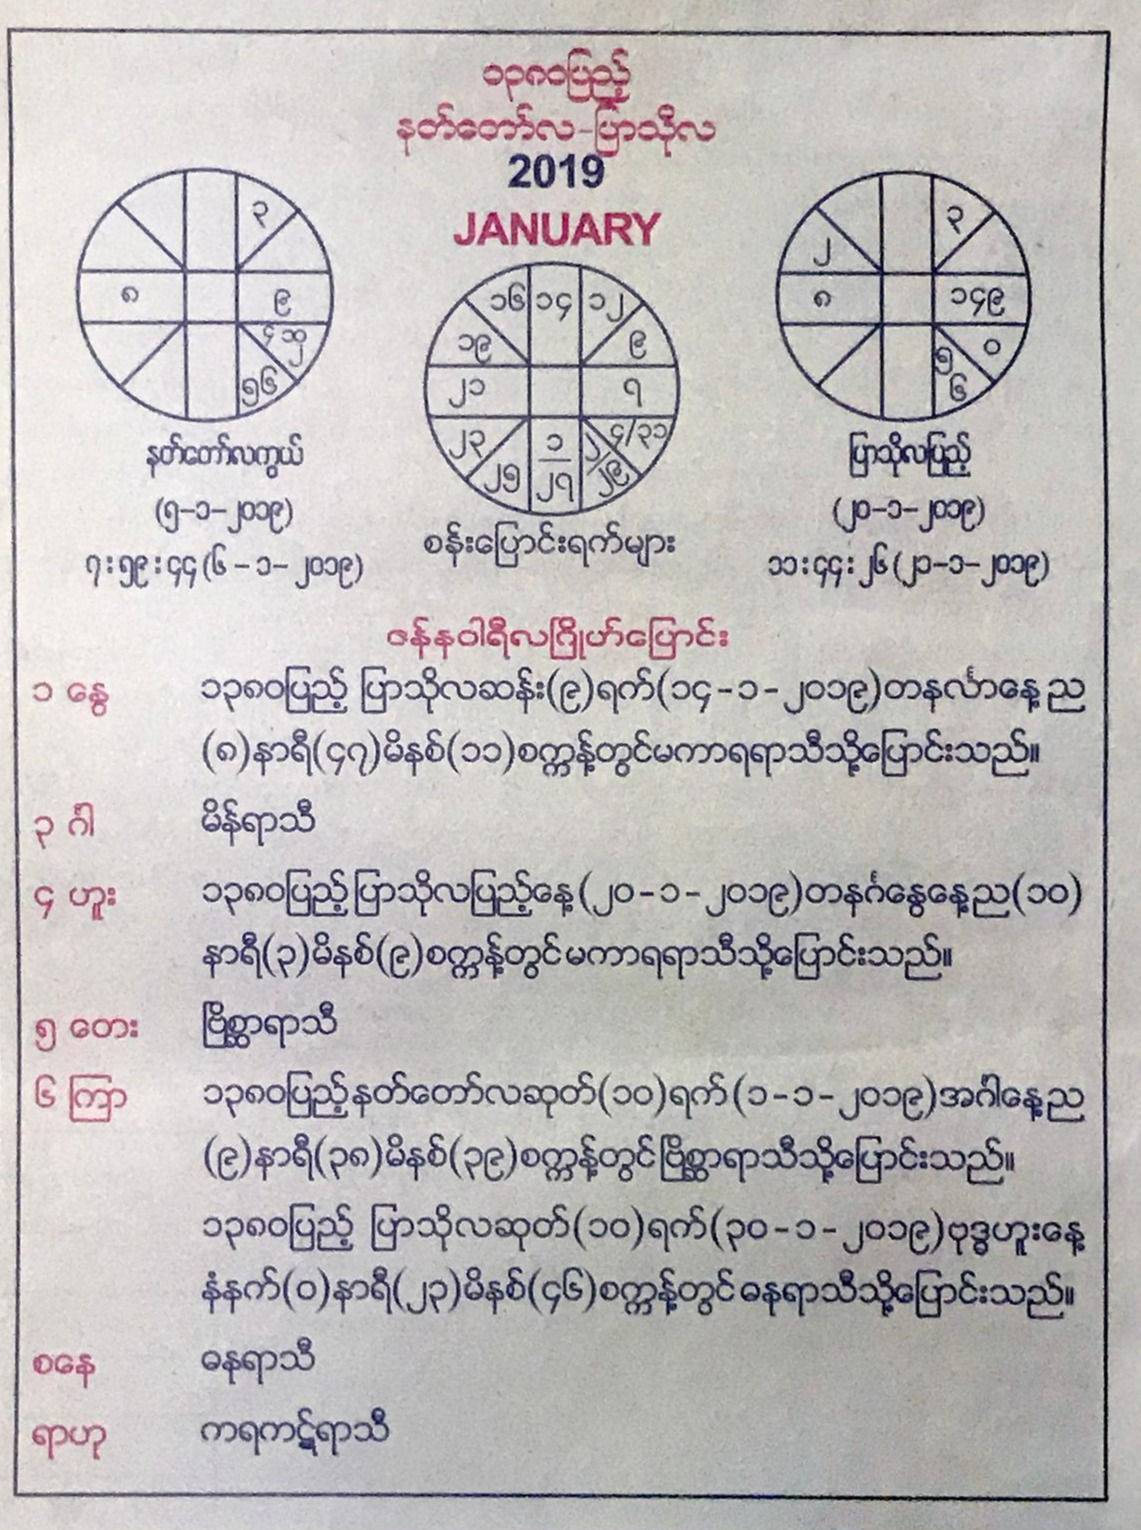 ၁၃၈၀ပြည့်
နတ်တော်လ-ပြာသိုလ
2019
JANUARY
၃
၈
၉
၄ ၁၂
၅၆
နတ်တော်လကွယ်
(၅-၁-၂၀၁၉)
၇:၅၉:၄၄(၆-၁-၂၀၁၉)
၁၆ ၁၄ ၁၂
၁၉ ၉
၂၁ ၇
၂၃ ၁ ၂ ၄/၃၁
၂၅ ၂၇ ၂၉
စန်းပြောင်းရက်များ
၃
၂
၈ ၁၄၉
၅ ၀
၆
ပြာသိုလပြည့်
(၂၀-၁-၂၀၁၉)
၁၁:၄၄:၂၆(၂၁-၁-၂၀၁၉)
ဇန်နဝါရီလဂြိုဟ်ပြောင်း
၁ နွေ ၁၃၈၀ပြည့် ပြာသိုလဆန်း(၉)ရက်(၁၄-၁-၂၀၁၉)တနင်္လာနေ့ည
(၈)နာရီ(၄၇)မိနစ်(၁၁)စက္ကန့်တွင်မကာရရာသီသို့ပြောင်းသည်။
၃ င်္ဂါ မိန်ရာသီ
၄ ဟူး ၁၃၈၀ပြည့်ပြာသိုလပြည့်နေ့(၂၀-၁-၂၀၁၉)တနင်္ဂနွေနေ့ည(၁၀)
နာရီ(၃)မိနစ်(၉)စက္ကန့်တွင်မကာရရာသီသို့ပြောင်းသည်။
၅ တေး ဗြိစ္ဆာရာသီ
၆ ကြာ ၁၃၈၀ပြည့်နတ်တော်လဆုတ်(၁၀)ရက်(၁-၁-၂၀၁၉)အင်္ဂါနေ့ည
(၉)နာရီ(၃၈)မိနစ်(၃၉)စက္ကန့်တွင်ဗြိစ္ဆာရာသီသို့ပြောင်းသည်။
၁၃၈၀ပြည့် ပြာသိုလဆုတ်(၁၀)ရက်(၃၀-၁-၂၀၁၉)ဗုဒ္ဓဟူးနေ့
နံနက်(၀)နာရီ(၂၃)မိနစ်(၄၆)စက္ကန့်တွင်ဓနုရာသီသို့ပြောင်းသည်။
စနေ ဓနုရာသီ
ရာဟု ကရကဋ်ရာသီ